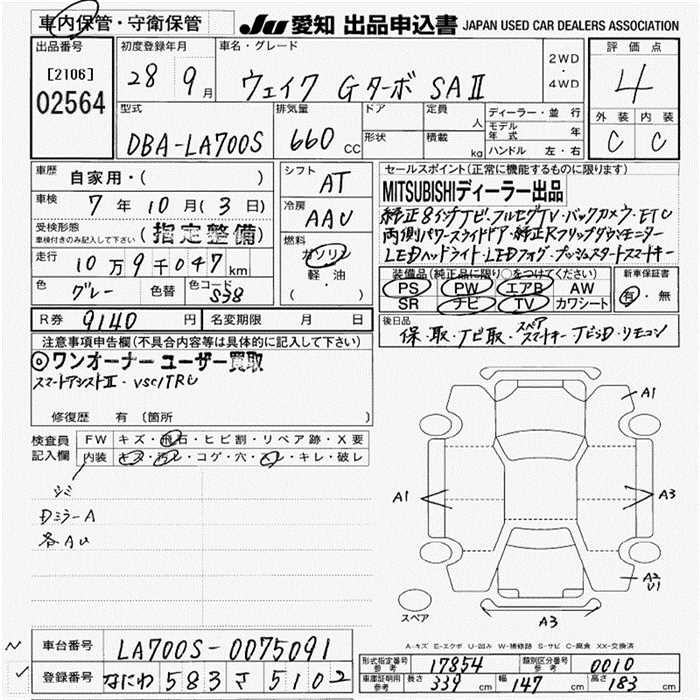 車内保管・守衛保管
JU 愛知 出品申込書 JAPAN USED CAR DEALERS ASSOCIATION
出品番号
[2106]
02564
初度登録年月
28 9月
車名・グレード
ウェイク Gターボ SAⅡ
2WD
・
4WD
評価点
4
外装 内装
C C
型式
DBA-LA700S
排気量
660 CC
ドア
形状
定員 人
積載 kg
ディーラー・並行
モデル年式 年
ハンドル 左・右
車歴
自家用・( )
車検
7年10月(3日)
受検形態
車検付きのみ記入して下さい
(指定整備)
走行
10万9千047km
色
グレー
色替
色コード
S38
シフト
AT
冷房
AAC
燃料
ガソリン
軽・油
( )
セールスポイント(正常に機能するものに限ります)
MITSUBISHIディーラー出品
純正8インチナビ・フルセグTV・バックカメラ・ETC
両側パワースライドドア・純正Rフリップダウンモニター
LEDヘッドライト・LEDフォグ・プッシュスタートスマートキー
装備品(純正品に限り○をつけてください)
PS PW エアB AW
SR ナビ TV カワシート
新車保証書
有・無
R券 9140 円
名変期限 月 日
後日品
保・取・ナビ取・スペアスマートキー・ナビSD・リモコン
注意事項申告欄(不具合内容等は具体的に記入して下さい)
◎ワンオーナー ユーザー買取
スマートアシストⅡ・VSC/TRC
修復歴 有 〔箇所
検査員
記入欄
FW キズ・飛石・ヒビ割・リペア跡・X要
内装 キズ・汚レ・コゲ・穴・スレ・キレ・破レ
シミ
DミラーA
各AU
A1
A1
A3
A2
U1
A3
スペア
A-キズ E-エクボ U-凹み W-補修跡 S-サビ C-腐食 XX-交換済
車台番号 LA700S-0075091
登録番号 なにわ 583 さ 5102
形式指定番号
参考
17854
類別区分番号
参考
0010
車庫証明用
参考
長さ 339 cm 幅 147 cm 高さ 183 cm